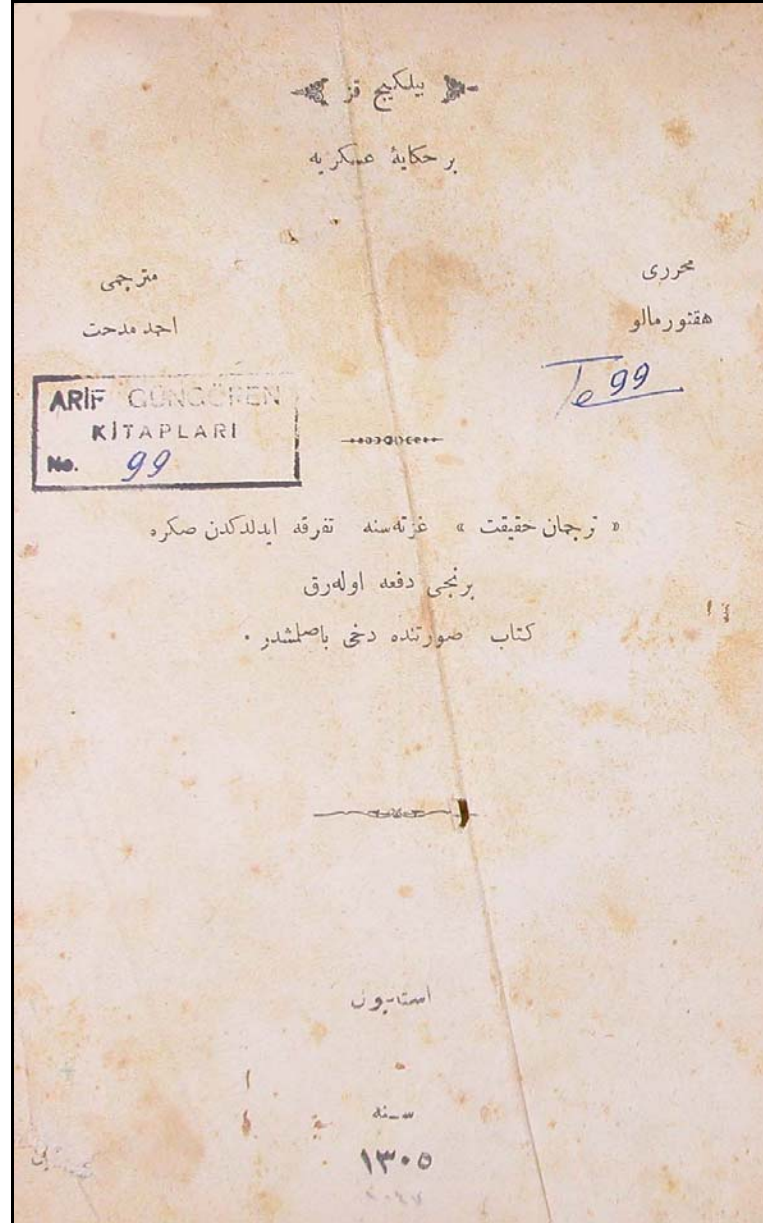 بیلكیج قز
بر حكایهٔ عسكریه
محرری
هقتورمالو
مترجمی
احمد مدحت
Te 99
ARİF GÜNGÖREN
KİTAPLARI
No. 99
« ترجمان حقیقت » غزته‌سنه تفرقه ایدلدكدن صكره
برنجی دفعه اوله‌رق
كتاب صورتنده دخی باصلمشدر ٠
استانبول
سنه
١٣٠٥